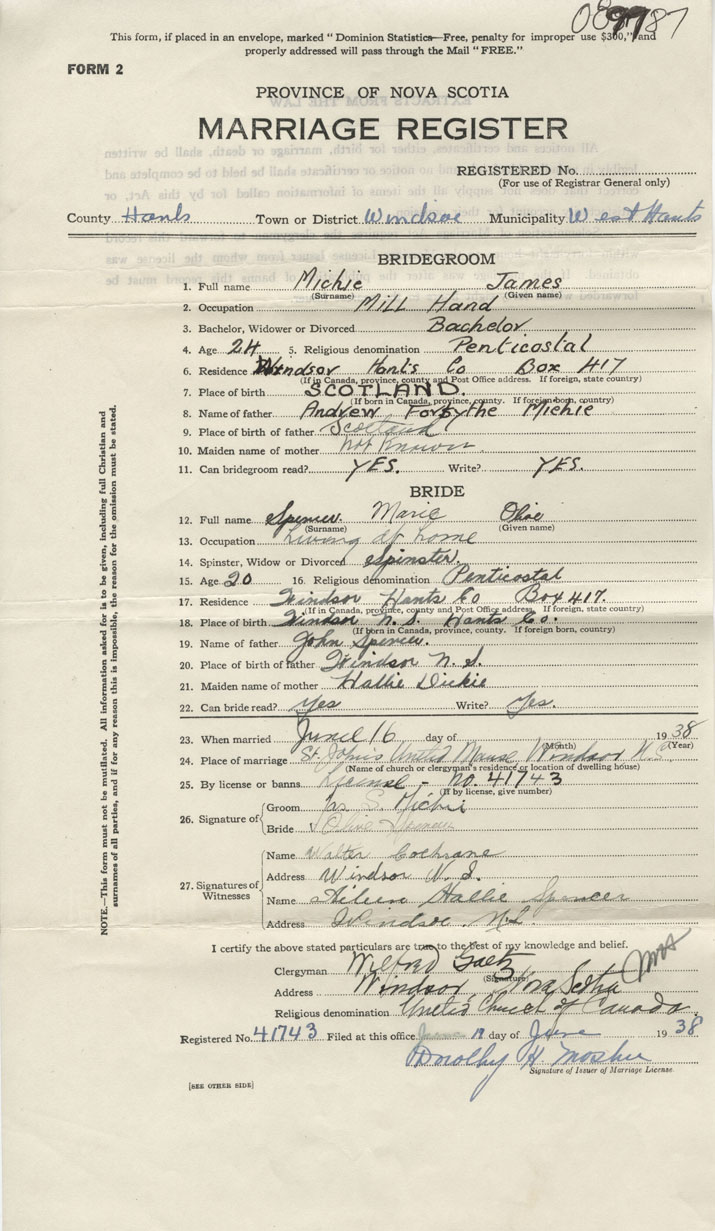 This form, if placed in an envelope, marked "Dominion Statistics—Free, penalty for improper use $300," and
properly addressed will pass through the Mail "FREE."
FORM 2
PROVINCE OF NOVA SCOTIA
MARRIAGE REGISTER
REGISTERED No.
(For use of Registrar General only)
County Hants Town or District Windsor Municipality West Hants
BRIDEGROOM
1. Full name Michie James
(Surname) (Given name)
2. Occupation Mill Hand
3. Bachelor, Widower or Divorced Bachelor
4. Age 24 5. Religious denomination Penticostal
6. Residence Windsor Hants Co Box 417
(If in Canada, province, county and Post Office address. If foreign, state country)
7. Place of birth SCOTLAND.
(If born in Canada, province, county. If foreign born, country)
8. Name of father Andrew Forsythe Michie
9. Place of birth of father Scotland
10. Maiden name of mother not known
11. Can bridegroom read? YES. Write? YES.
BRIDE
12. Full name Spencer. Marie Olive
(Surname) (Given name)
13. Occupation Living at home
14. Spinster, Widow or Divorced Spinster.
15. Age 20 16. Religious denomination Penticostal
17. Residence Windsor Hants Co Box 417.
(If in Canada, province, county and Post Office address. If foreign, state country)
18. Place of birth Windsor N. S. Hants Co.
(If born in Canada, province, county. If foreign born, country)
19. Name of father John Spencer.
20. Place of birth of father Windsor N. S.
21. Maiden name of mother Hallie Dickie
22. Can bride read? Yes Write? Yes.
23. When married June 16 day of 1938
(Month) (Year)
24. Place of marriage St. John's United Manse Windsor N.S
(Name of church or clergyman's residence or location of dwelling house)
25. By license or banns License - No. 41743
(If by license, give number)
26. Signature of
Groom Jas S. Michie
Bride Olive Spencer
27. Signatures of Witnesses
Name Walter Cochrane
Address Windsor N. S.
Name Aileen Hallie Spencer
Address Windsor. N.S
I certify the above stated particulars are true to the best of my knowledge and belief.
Clergyman Wilfred Gaetz
(Signature)
Address Windsor, Nova Scotia
Religious denomination United Church of Canada
Registered No. 41743 Filed at this office 17 day of June 1938
Dorothy H. Mosher
Signature of Issuer of Marriage License
[SEE OTHER SIDE]
NOTE.—This form must not be mutilated. All information asked for is to be given, including full Christian and
surnames of all parties, and if for any reason this is impossible, the reason for the omission must be stated.